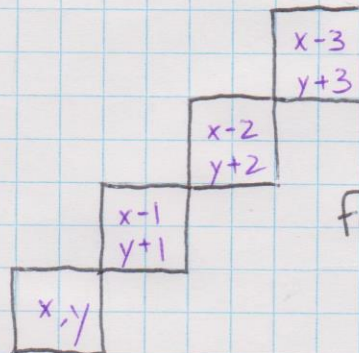 x-3
y+3
x-2
y+2
x-1
y+1
x,y
f